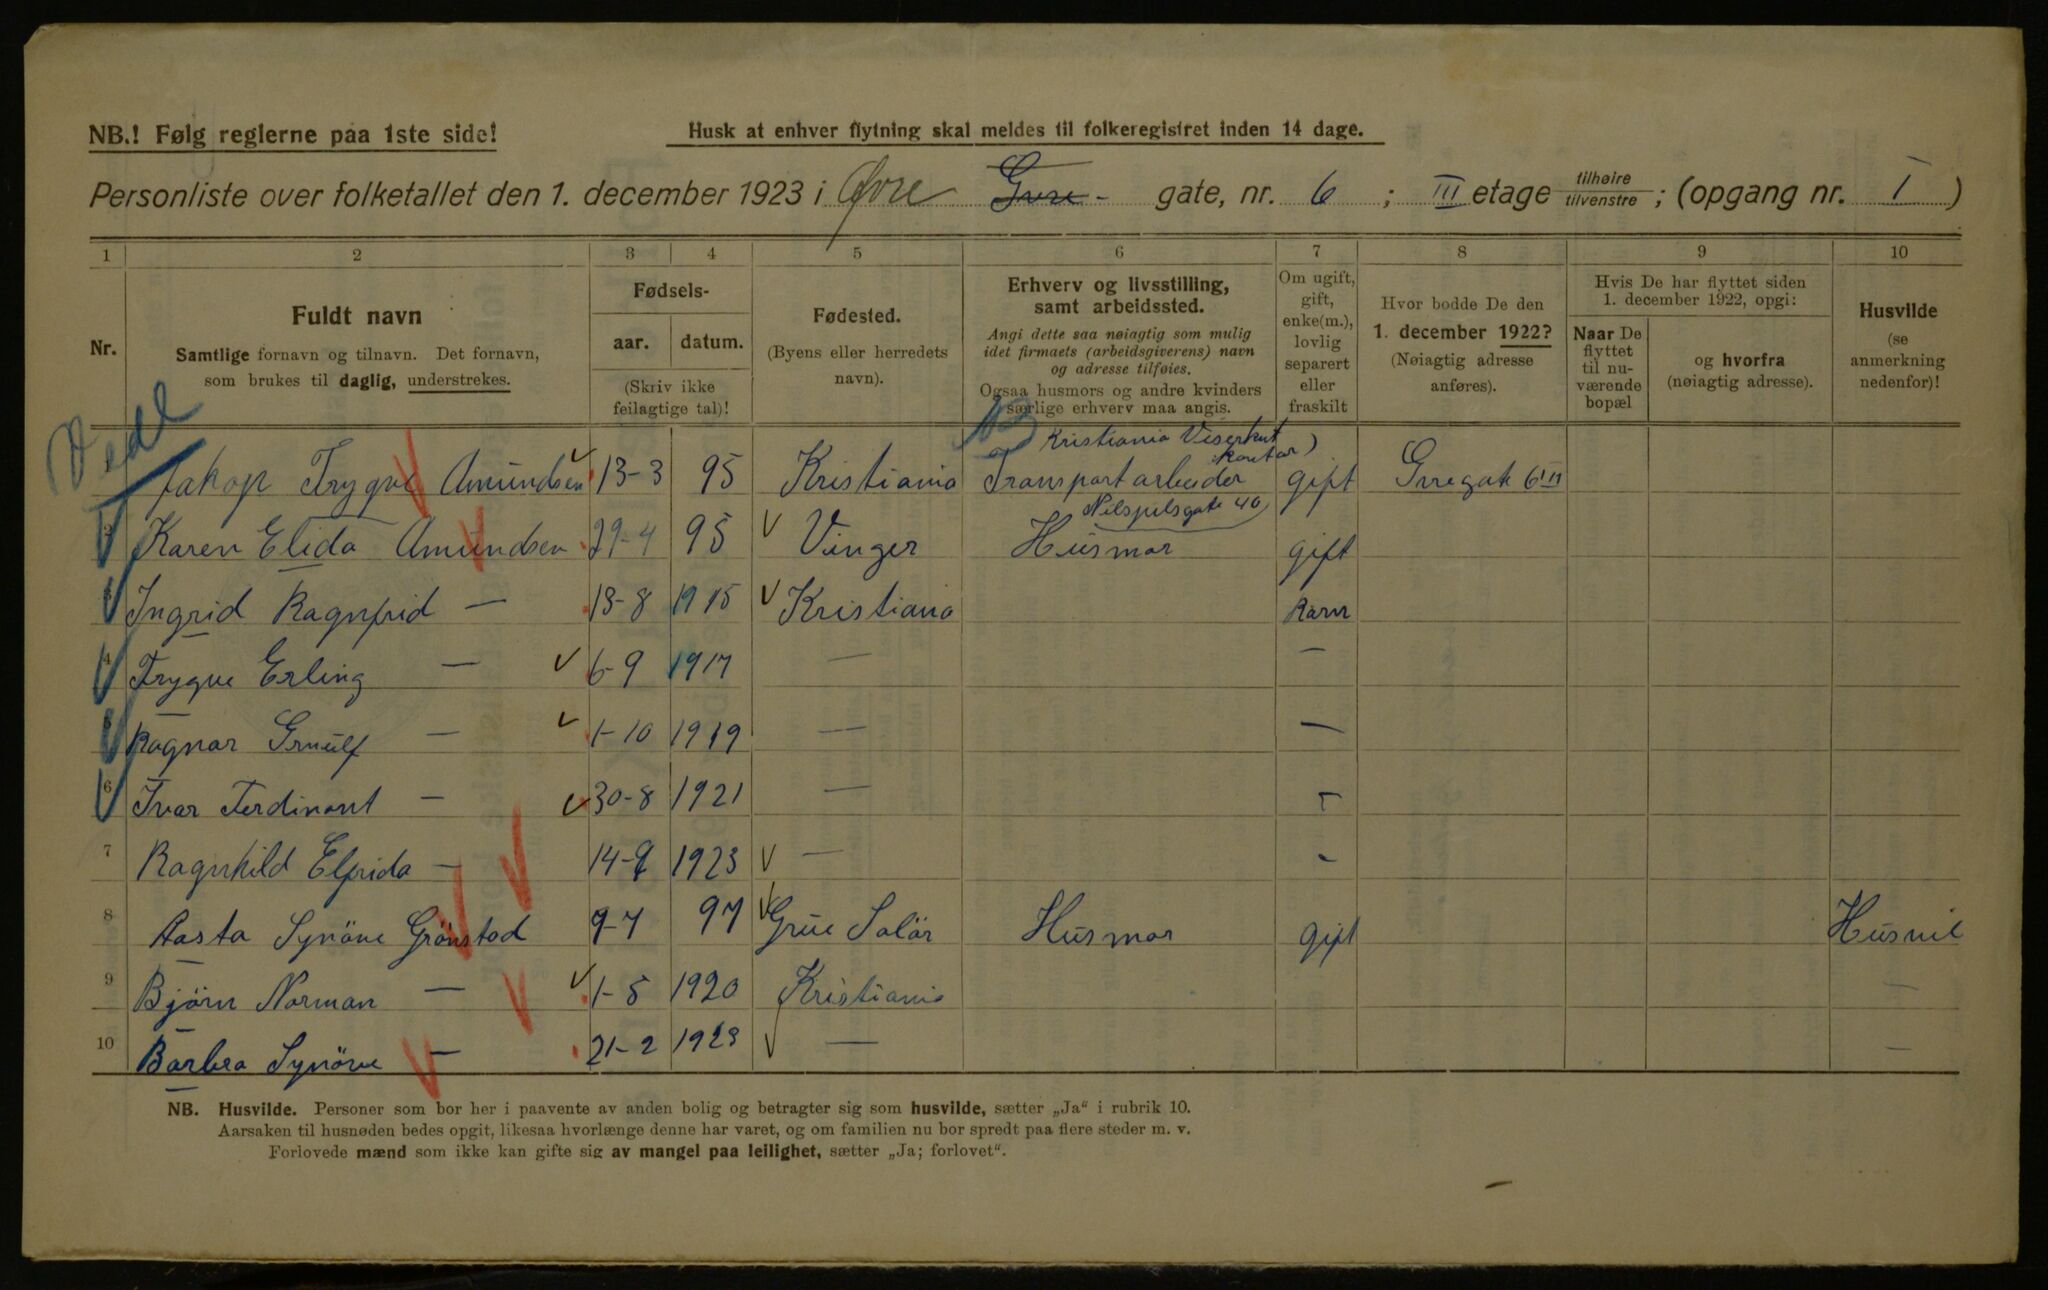 NB.! Følg reglerne paa 1ste side!
Husk at enhver flytning skal meldes til folkeregistret inden 14 dage.
Personliste over folketallet den 1. december 1923 i Øvre gate, nr. 6 ; III etage tilhøire tilvenstre ; (opgang nr. I )
1 2 3 4 5 6 7 8 9 10
Nr.
Fuldt navn
Samtlige fornavn og tilnavn. Det fornavn,
som brukes til daglig, understrekes.
Fødsels-
aar. datum.
(Skriv ikke
feilagtige tal)!
Fødested.
(Byens eller herredets
navn).
Erhverv og livsstilling,
samt arbeidssted.
Angi dette saa nøiagtig som mulig
idet firmaets (arbeidsgiverens) navn
og adresse tilføies.
Ogsaa husmors og andre kvinders
særlige erhverv maa angis.
Om ugift,
gift,
enke(m.),
lovlig
separert
eller
fraskilt
Hvor bodde De den
1. december 1922?
(Nøiagtig adresse
anføres).
Hvis De har flyttet siden
1. december 1922, opgi:
Naar De
flyttet
til nu-
værende
bopæl
og hvorfra
(nøiagtig adresse).
Husvilde
(se
anmerkning
nedenfor)!
Kristiania
Jakop Trygve Amundsen 13-3 95 Kristiania Transportarbeider gift
Karen Elida Amundsen 29-4 95 Vinger Husmor gift
Ingrid Ragnfrid — 13-8 1915 Kristiania barn
4 Trygve Erling — 6-9 1917 — —
5 Ragnar — 1-10 1919 — —
6 Ivar Ferdinant — 30-8 1921 — -
7 Ragnhild Elfrida — 14-9 1923 — -
8 Aasta Synöve Grönstad 9-7 97 Grue Solör Husmor gift Husvil
9 Björn Norman — 1-5 1920 Kristiania —
10 Barbra Synöve — 21-2 1923 — —
NB. Husvilde. Personer som bor her i paavente av anden bolig og betragter sig som husvilde, sætter „Ja“ i rubrik 10.
Aarsaken til husnøden bedes opgit, likesaa hvorlænge denne har varet, og om familien nu bor spredt paa flere steder m. v.
Forlovede mænd som ikke kan gifte sig av mangel paa leilighet, sætter „Ja; forlovet“.